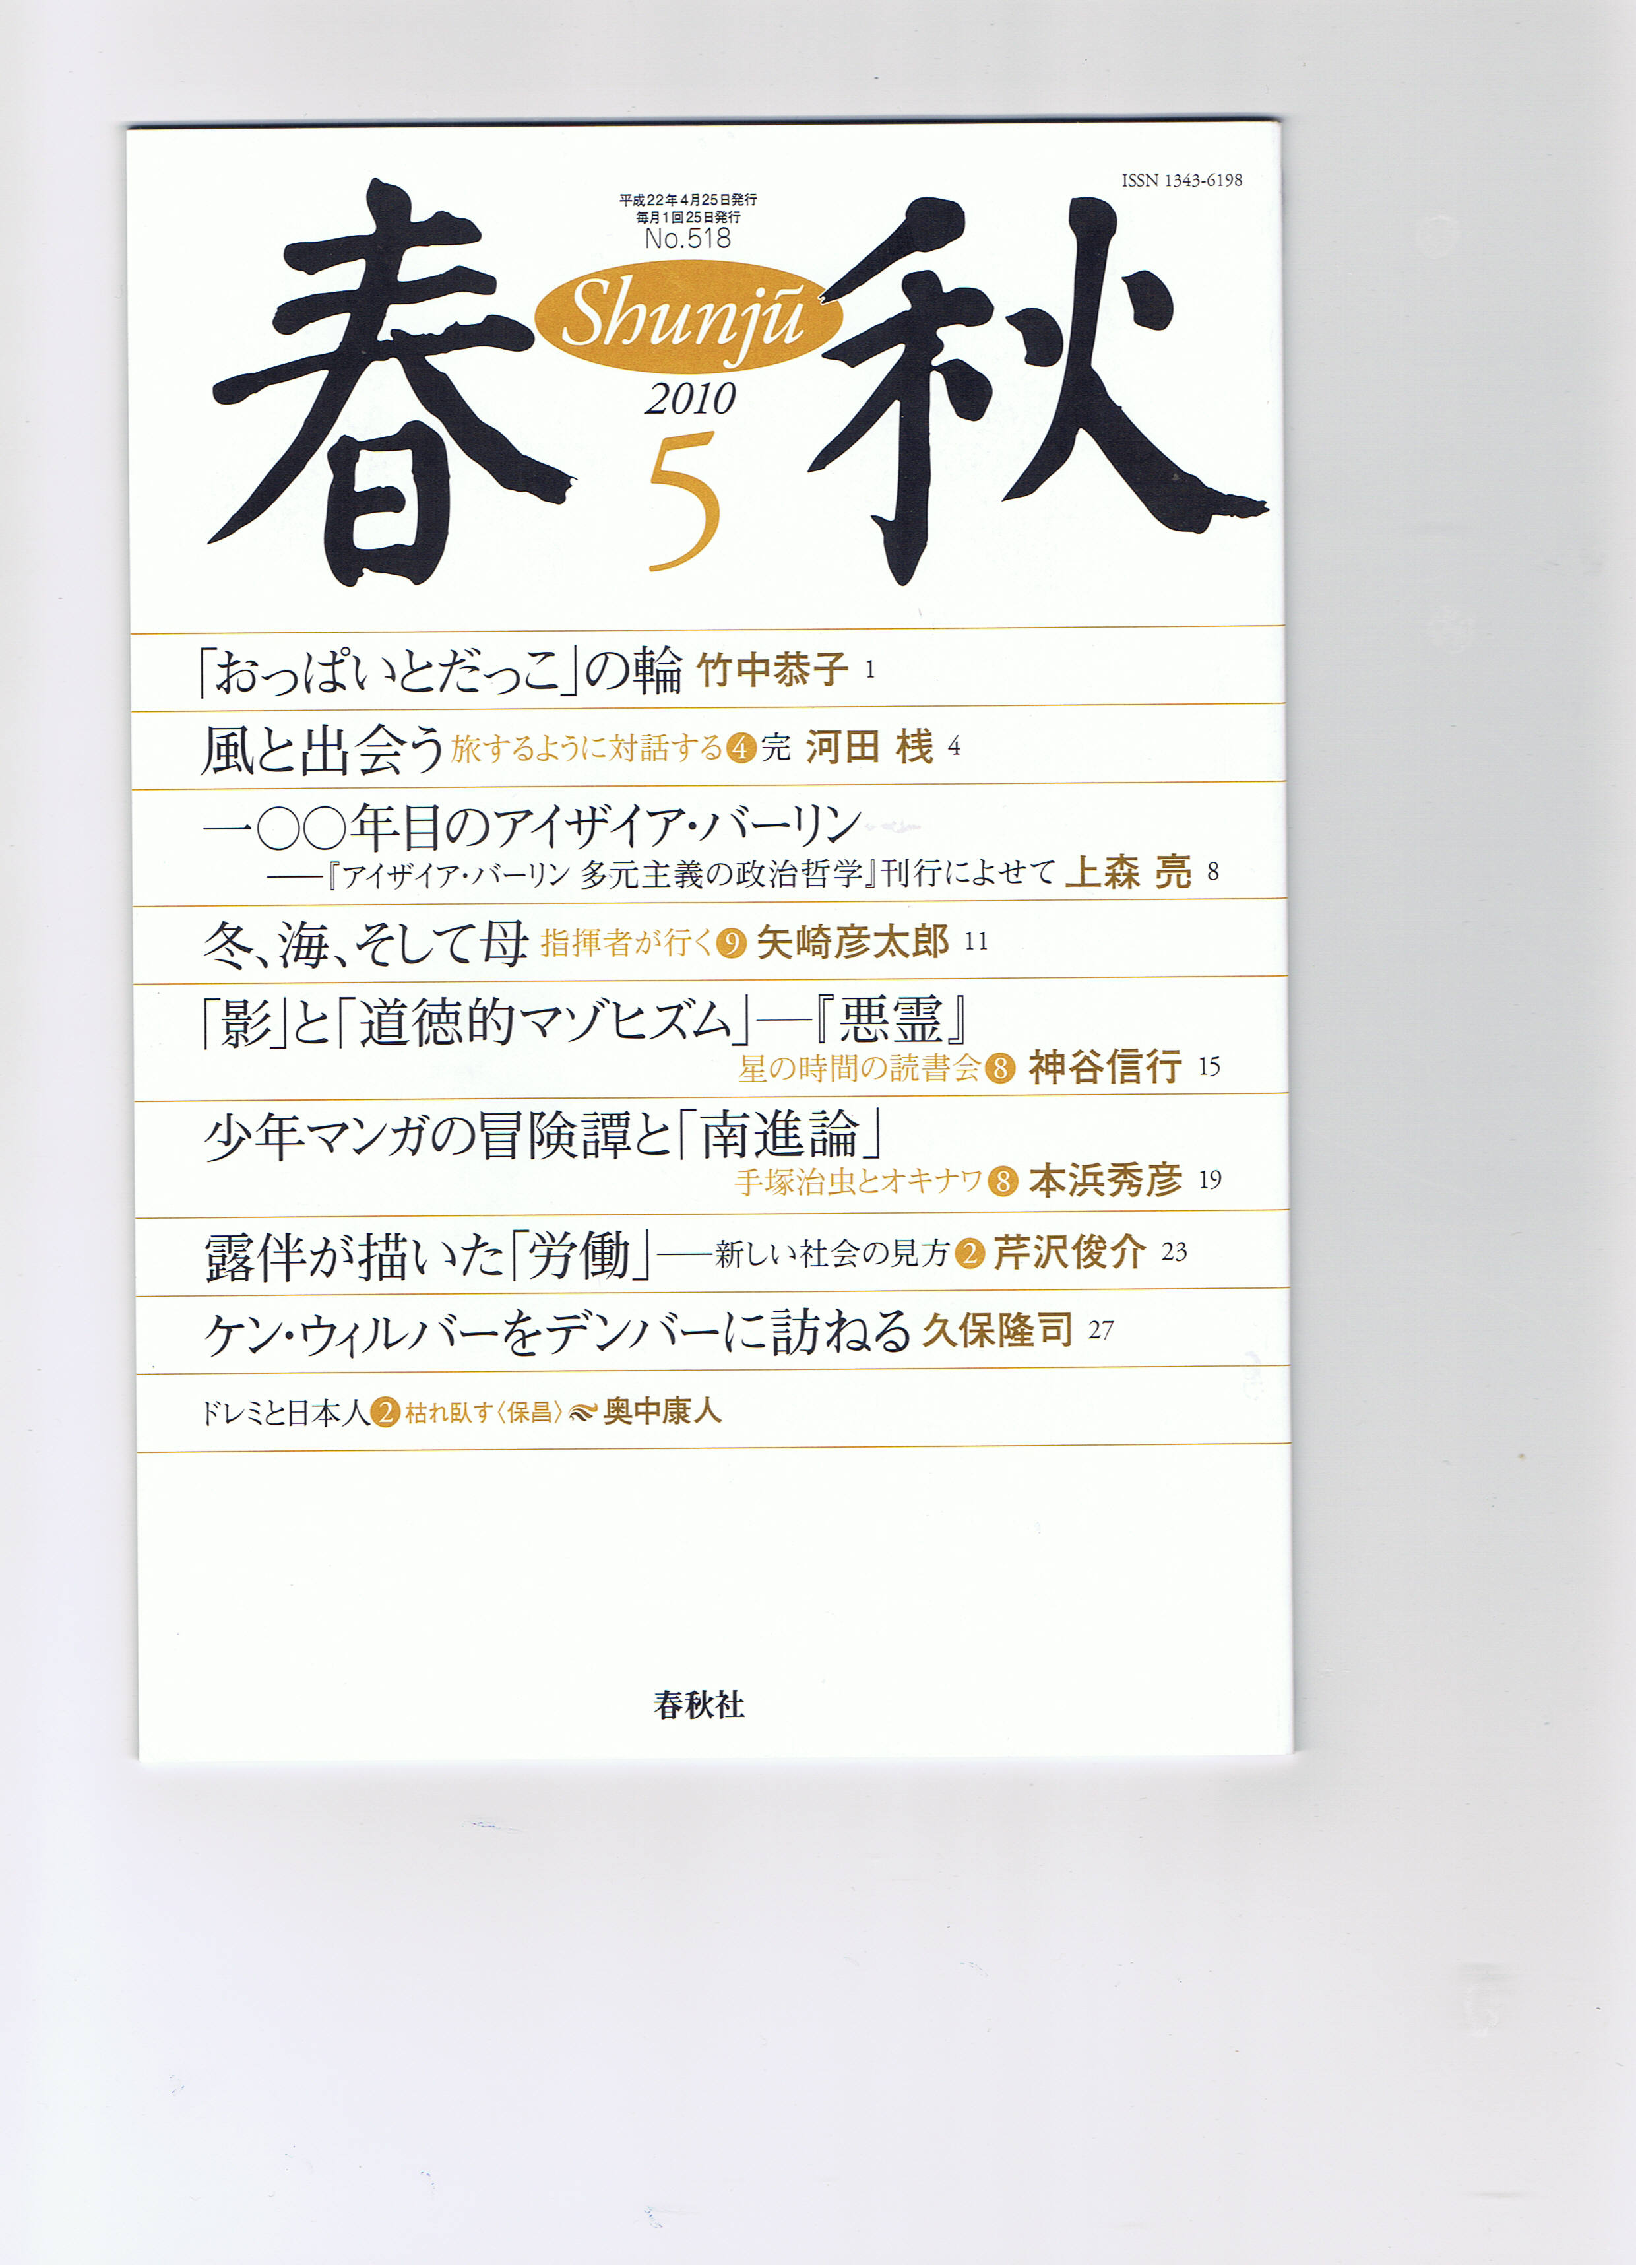 ISSN 1343-6198
平成22年4月25日発行
毎月1回25日発行
No.518
春秋
Shunjū
2010
5
「おっぱいとだっこ」の輪 竹中恭子 1
風と出会う 旅するように対話する❹完 河田 桟 4
一〇〇年目のアイザイア・バーリン
──『アイザイア・バーリン 多元主義の政治哲学』刊行によせて 上森 亮 8
冬、海、そして母 指揮者が行く❾ 矢崎彦太郎 11
「影」と「道徳的マゾヒズム」―『悪霊』
星の時間の読書会❽ 神谷信行 15
少年マンガの冒険譚と「南進論」
手塚治虫とオキナワ❽ 本浜秀彦 19
露伴が描いた「労働」──新しい社会の見方❷ 芹沢俊介 23
ケン・ウィルバーをデンバーに訪ねる 久保隆司 27
ドレミと日本人❷ 枯れ臥す〈保昌〉 奥中康人
春秋社